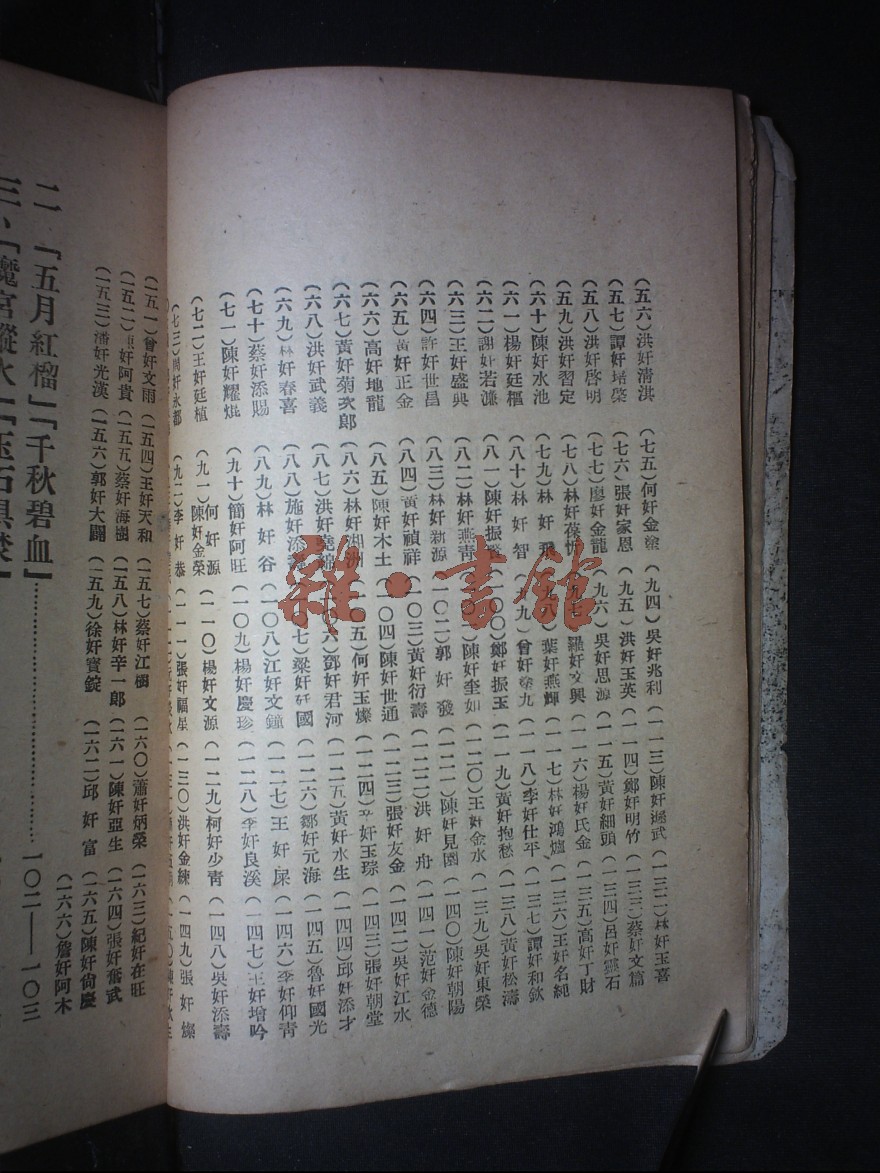 (五六)洪奸清洪
(五七)譚奸培榮
(五八)洪奸啓明
(五九)洪奸習定
(六十)陳奸水池
(六一)楊奸廷樞
(六二)謝奸若濂
(六三)王奸盛典
(六四)許奸世昌
(六五)黃奸正金
(六六)高奸地龍
(六七)黃奸菊次郎
(六八)洪奸武義
(六九)林奸春喜
(七十)蔡奸添賜
(七一)陳奸耀焜
(七二)王奸廷植
(七三)周奸永都
(七五)何奸金
(七六)張奸家恩
(七七)廖奸金龍
(七八)林奸葆忱
(七九)林奸飛
(八十)林奸智
(八一)陳奸振
(八二)林奸燕靑
(八三)林奸新源
(八四)黃奸禎祥
(八五)陳奸木土
(八六)林奸湖洲
(八七)洪奸堯錦
(八八)施奸添壽
(八九)林奸谷
(九十)簡奸阿旺
何奸源
(九一)陳奸金榮
(九二)李奸恭
(九四)吳奸兆利
(九五)洪奸玉英
(九六)吳奸思源
(九七)羅奸文興
(九八)葉奸燕輝
(九九)曾奸九
(一〇〇)鄭奸振玉
陳奸奎如
(一〇二)郭奸發
(一〇三)黃奸衍壽
(一〇四)陳奸世通
(一〇五)何奸玉燦
(一〇六)鄧奸君河
(一〇七)梁奸國
(一〇八)江奸文鐘
(一〇九)楊奸慶珍
(一一〇)楊奸文源
(一一一)張奸福星
(一一三)陳奸遜武
(一一四)鄭奸明竹
(一一五)黃奸細頭
(一一六)楊奸氏金
(一一七)林奸鴻爐
(一一八)李奸仕平
(一一九)黃奸抱愁
(一二〇)王奸金水
(一二一)陳奸見園
(一二二)洪奸舟
(一二三)張奸友金
(一二四)奸玉琮
(一二五)黃奸水生
(一二六)鄒奸元海
(一二七)王奸屎
(一二八)李奸良溪
(一二九)柯奸少靑
(一三〇)洪奸金練
(一三二)林奸玉喜
(一三三)蔡奸文篇
(一三四)呂奸靈石
(一三五)高奸丁財
(一三六)王奸名純
(一三七)譚奸和欽
(一三八)黃奸松濤
(一三九)吳奸東榮
(一四〇)陳奸朝陽
(一四一)范奸金德
(一四二)吳奸江水
(一四三)張奸朝堂
(一四四)邱奸添才
(一四五)魯奸國光
(一四六)李奸仰靑
(一四七)王奸增吟
(一四八)吳奸添壽
(一四九)張奸燦
(一五一)曾奸文雨
(一五二)奸阿貴
(一五三)潘奸光漢
(一五四)王奸天和
(一五五)蔡奸海樹
(一五六)郭奸大闢
(一五七)蔡奸江樹
(一五八)林奸辛一郎
(一五九)徐奸寶錠
(一六〇)蕭奸炳榮
(一六一)陳奸亞生
(一六二)邱奸富
(一六三)紀奸在旺
(一六四)張奸奮武
(一六五)陳奸尙慶
(一六六)詹奸阿木
二、「五月紅榴」「千秋碧血」……一〇二——一〇三
三、「魔宮縱火」「玉石俱焚」
雜·書館